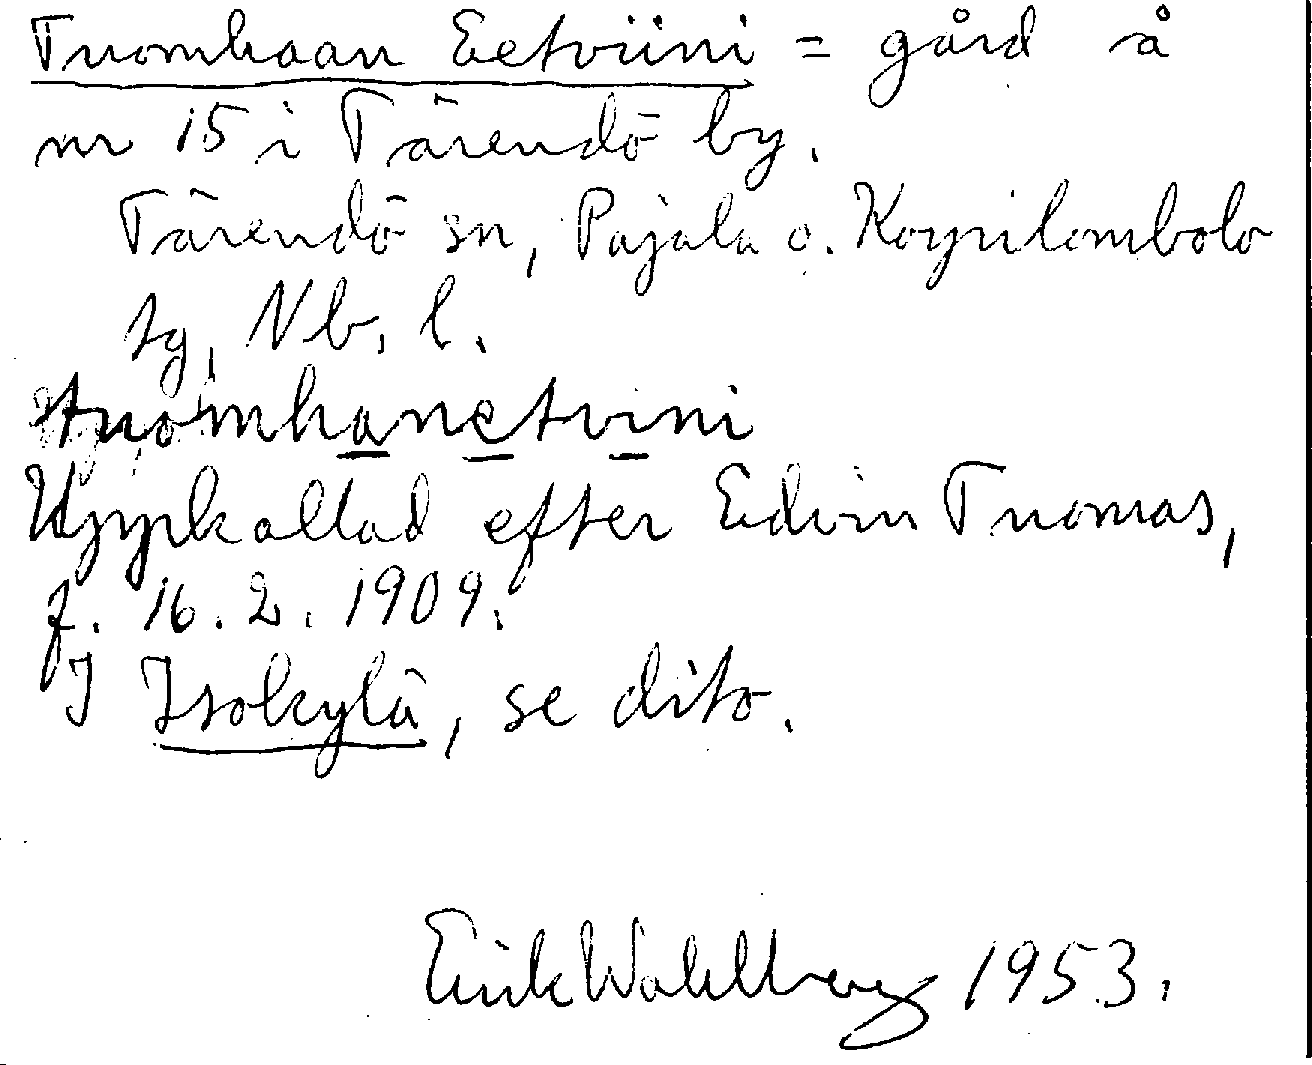 Tuomhaan Eetviini = gård å
nr 15 i Tärendö by.
Tärendö sn, Pajala o. Korpilombolo
tg, Nb. l.
tuomhanetvini
Uppkallad efter Edvin Tuomas,
f. 16.2.1909.
I Isokylä, se dito.
Erik Wahlberg 1953.